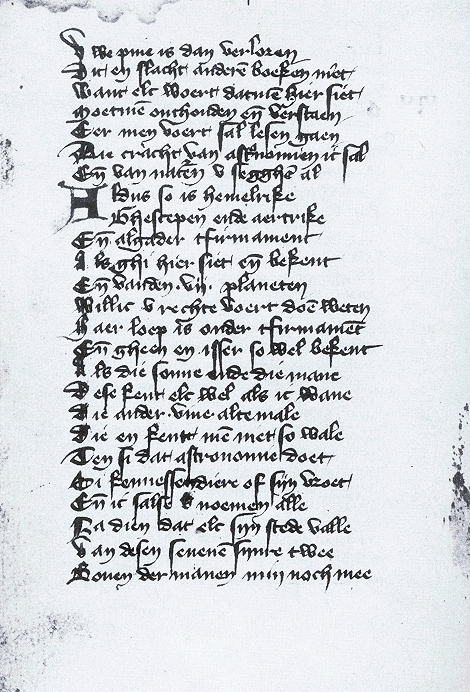 Uwe pine is dan verloren
Dit en slacht anderē boeken niet
Want elc woert datmē hier siet
Moetmē onthouden eñ verstaen
Eer men voert sal lesen gaen
Die cracht van astronomien ic sal
Eñ van naturē v segghē al
Aldus so is hemelrike
Ghescepen ende aertrike
Eñ algader tfirmament
Als ghi hier siet eñ bekent
Eñ vanden .vij. planeten
Willic v rechte voert doē weten
Haer loep is onder tfirmamēt
Eñ gheen en isser so wel bekent
Als die sonne ende die mane
Dese kent elc wel als ic wane
Die ander .viue altemale
Die en kent mē niet so wale
Ten si dat astronomie doet
Bi kennessen diere of sijn vroet
Eñ ic salse v noemen alle
Na dien dat elc sijn stede valle
Van desen seuenē sijnre twee
Bouen der manen min noch mee